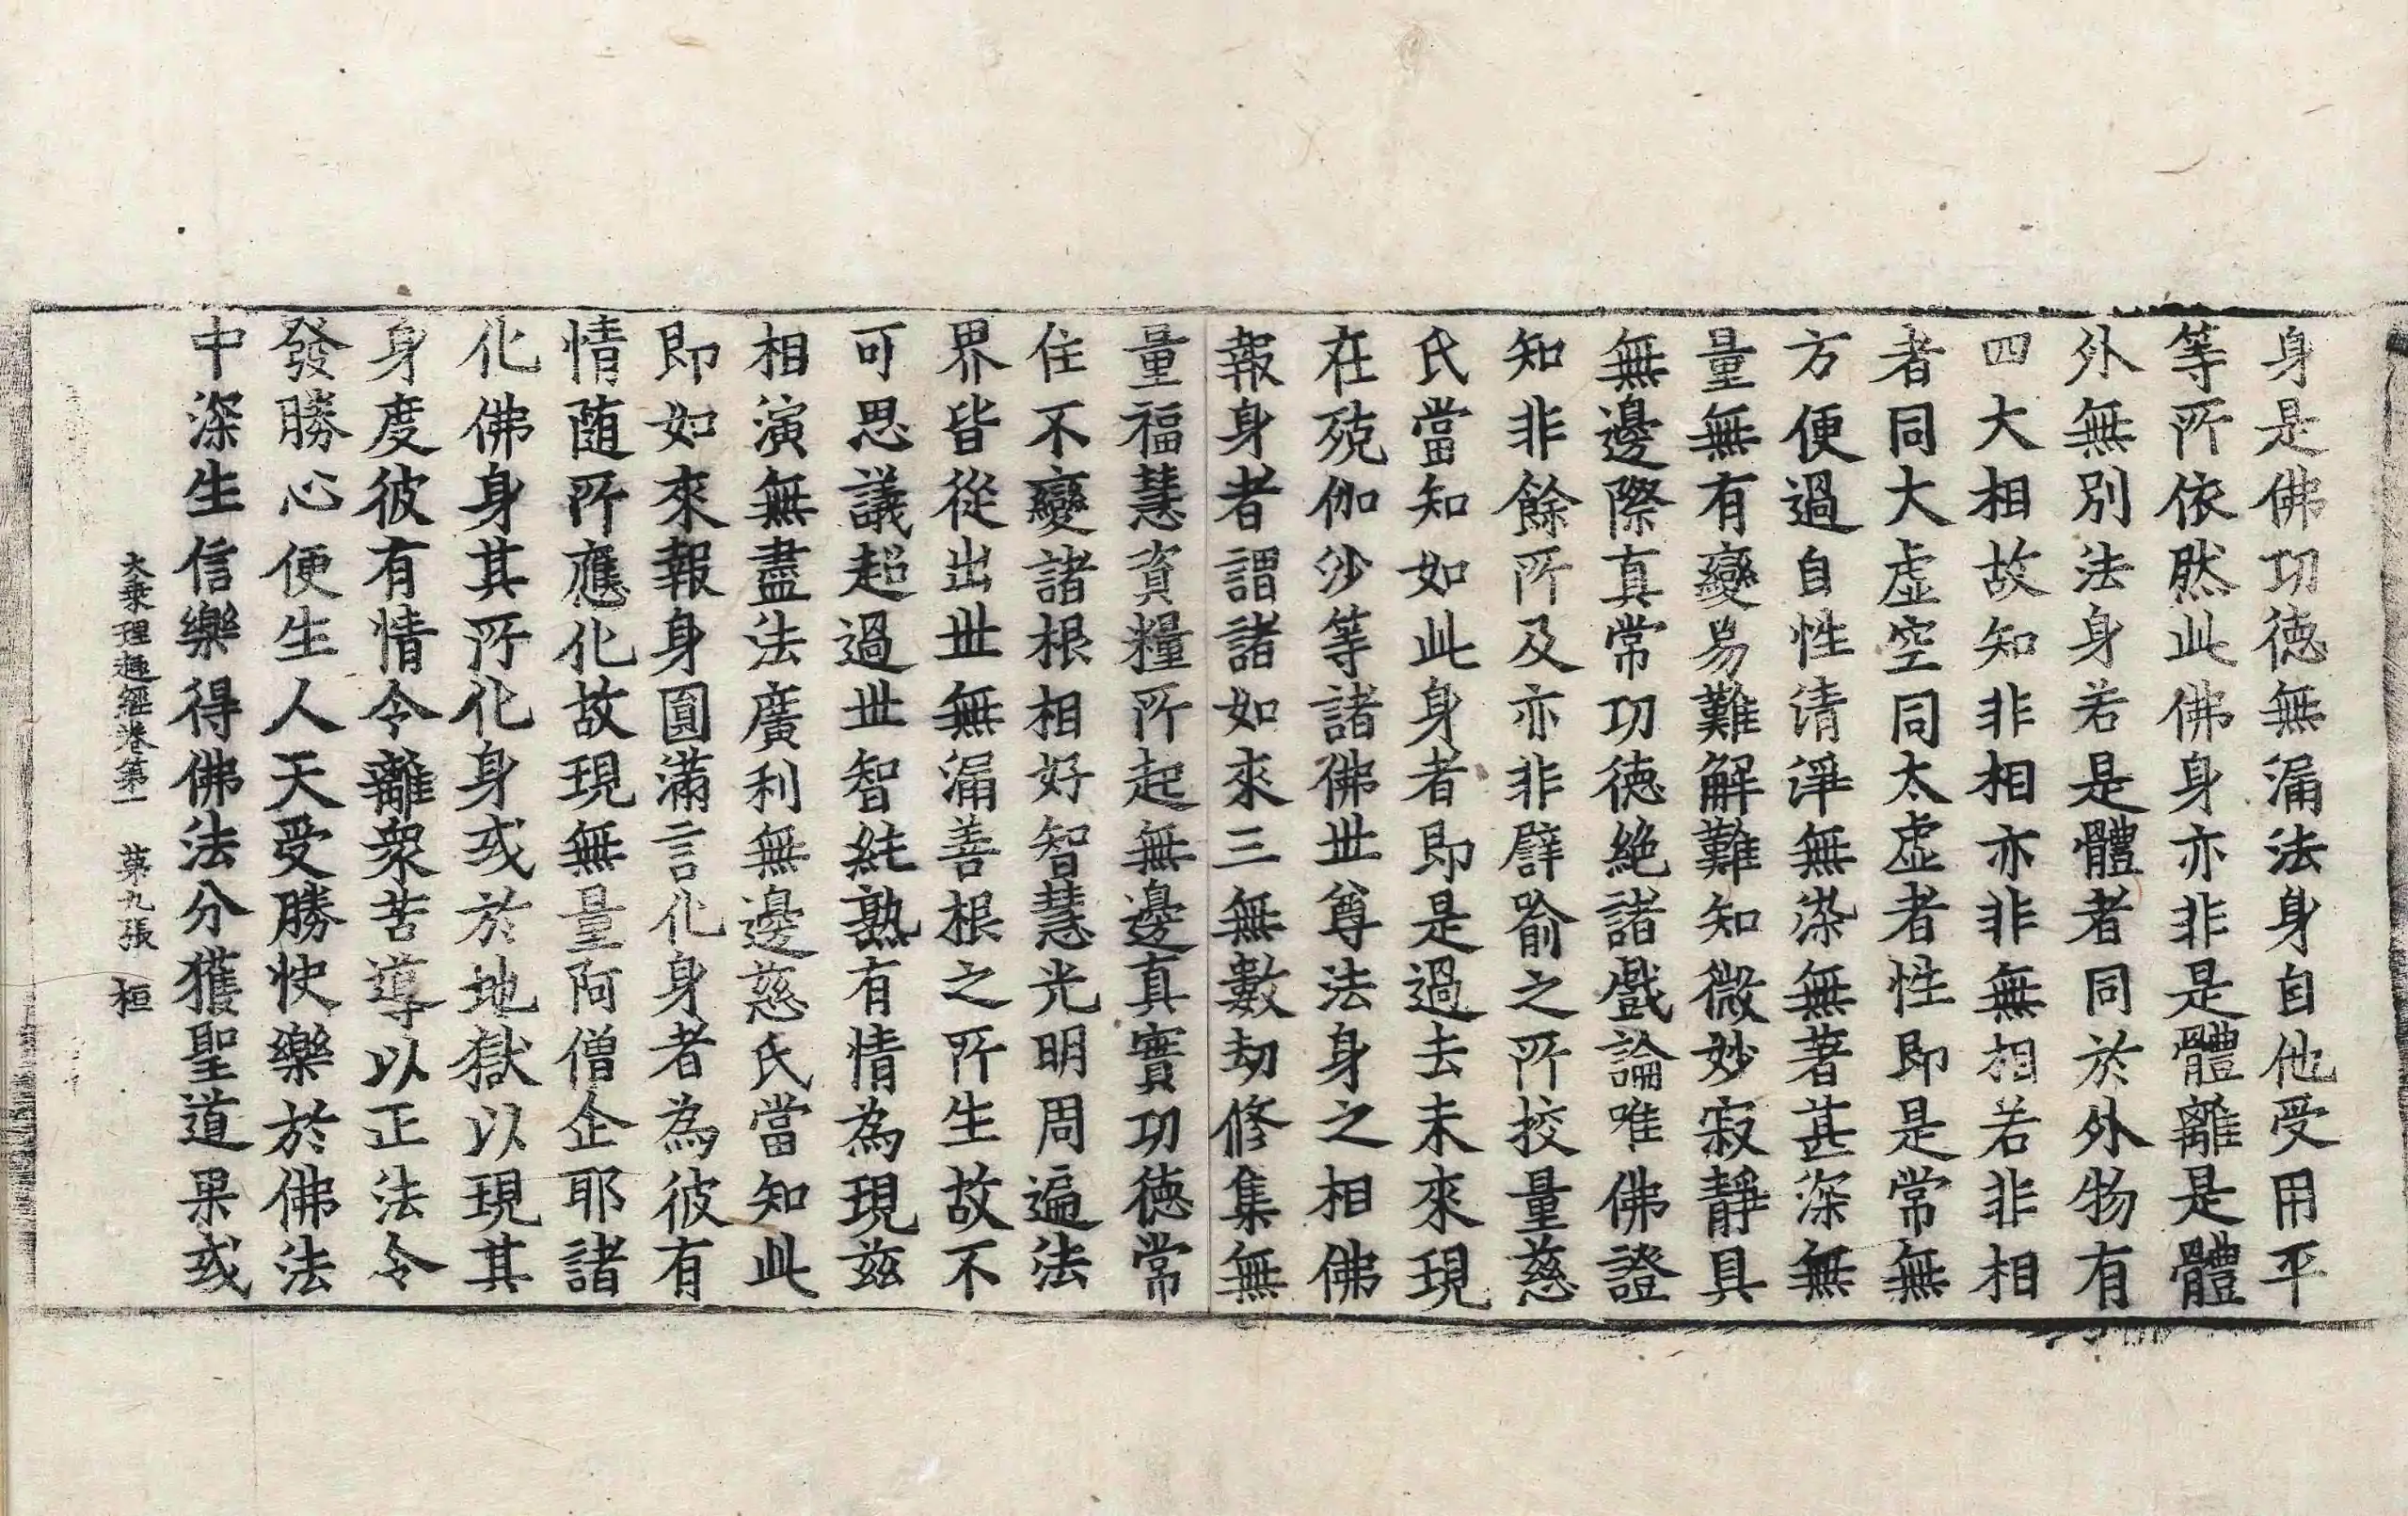 身是佛功徳無漏法身自他受用平
等所依然此佛身亦非是體離是體
外無別法身若是體者同於外物有
四大相故知非相亦非無相若非相
者同大虛空同太虛者性即是常無
方便過自性清淨無染無著甚深無
量無有變易難解難知微妙寂靜具
無邊際真常功徳絶諸戲論唯佛證
知非餘所及亦非譬喻之所挍量慈
氏當知如此身者即是過去未來現
在殑伽沙等諸佛世尊法身之相佛
報身者謂諸如來三無數劫修集無
量福慧資糧所起無邊真實功徳常
住不變諸根相好智慧光明周遍法
界皆從出世無漏善根之所生故不
可思議超過世智純熟有情為現茲
相演無盡法廣利無邊慈氏當知此
即如來報身圓滿言化身者為彼有
情随所應化故現無量阿僧企耶諸
化佛身其所化身或於地獄以現其
身度彼有情令離衆苦導以正法令
發勝心便生人天受勝快樂於佛法
中深生信樂得佛法分獲聖道果或
大乘理趣經卷第一　第九張　桓